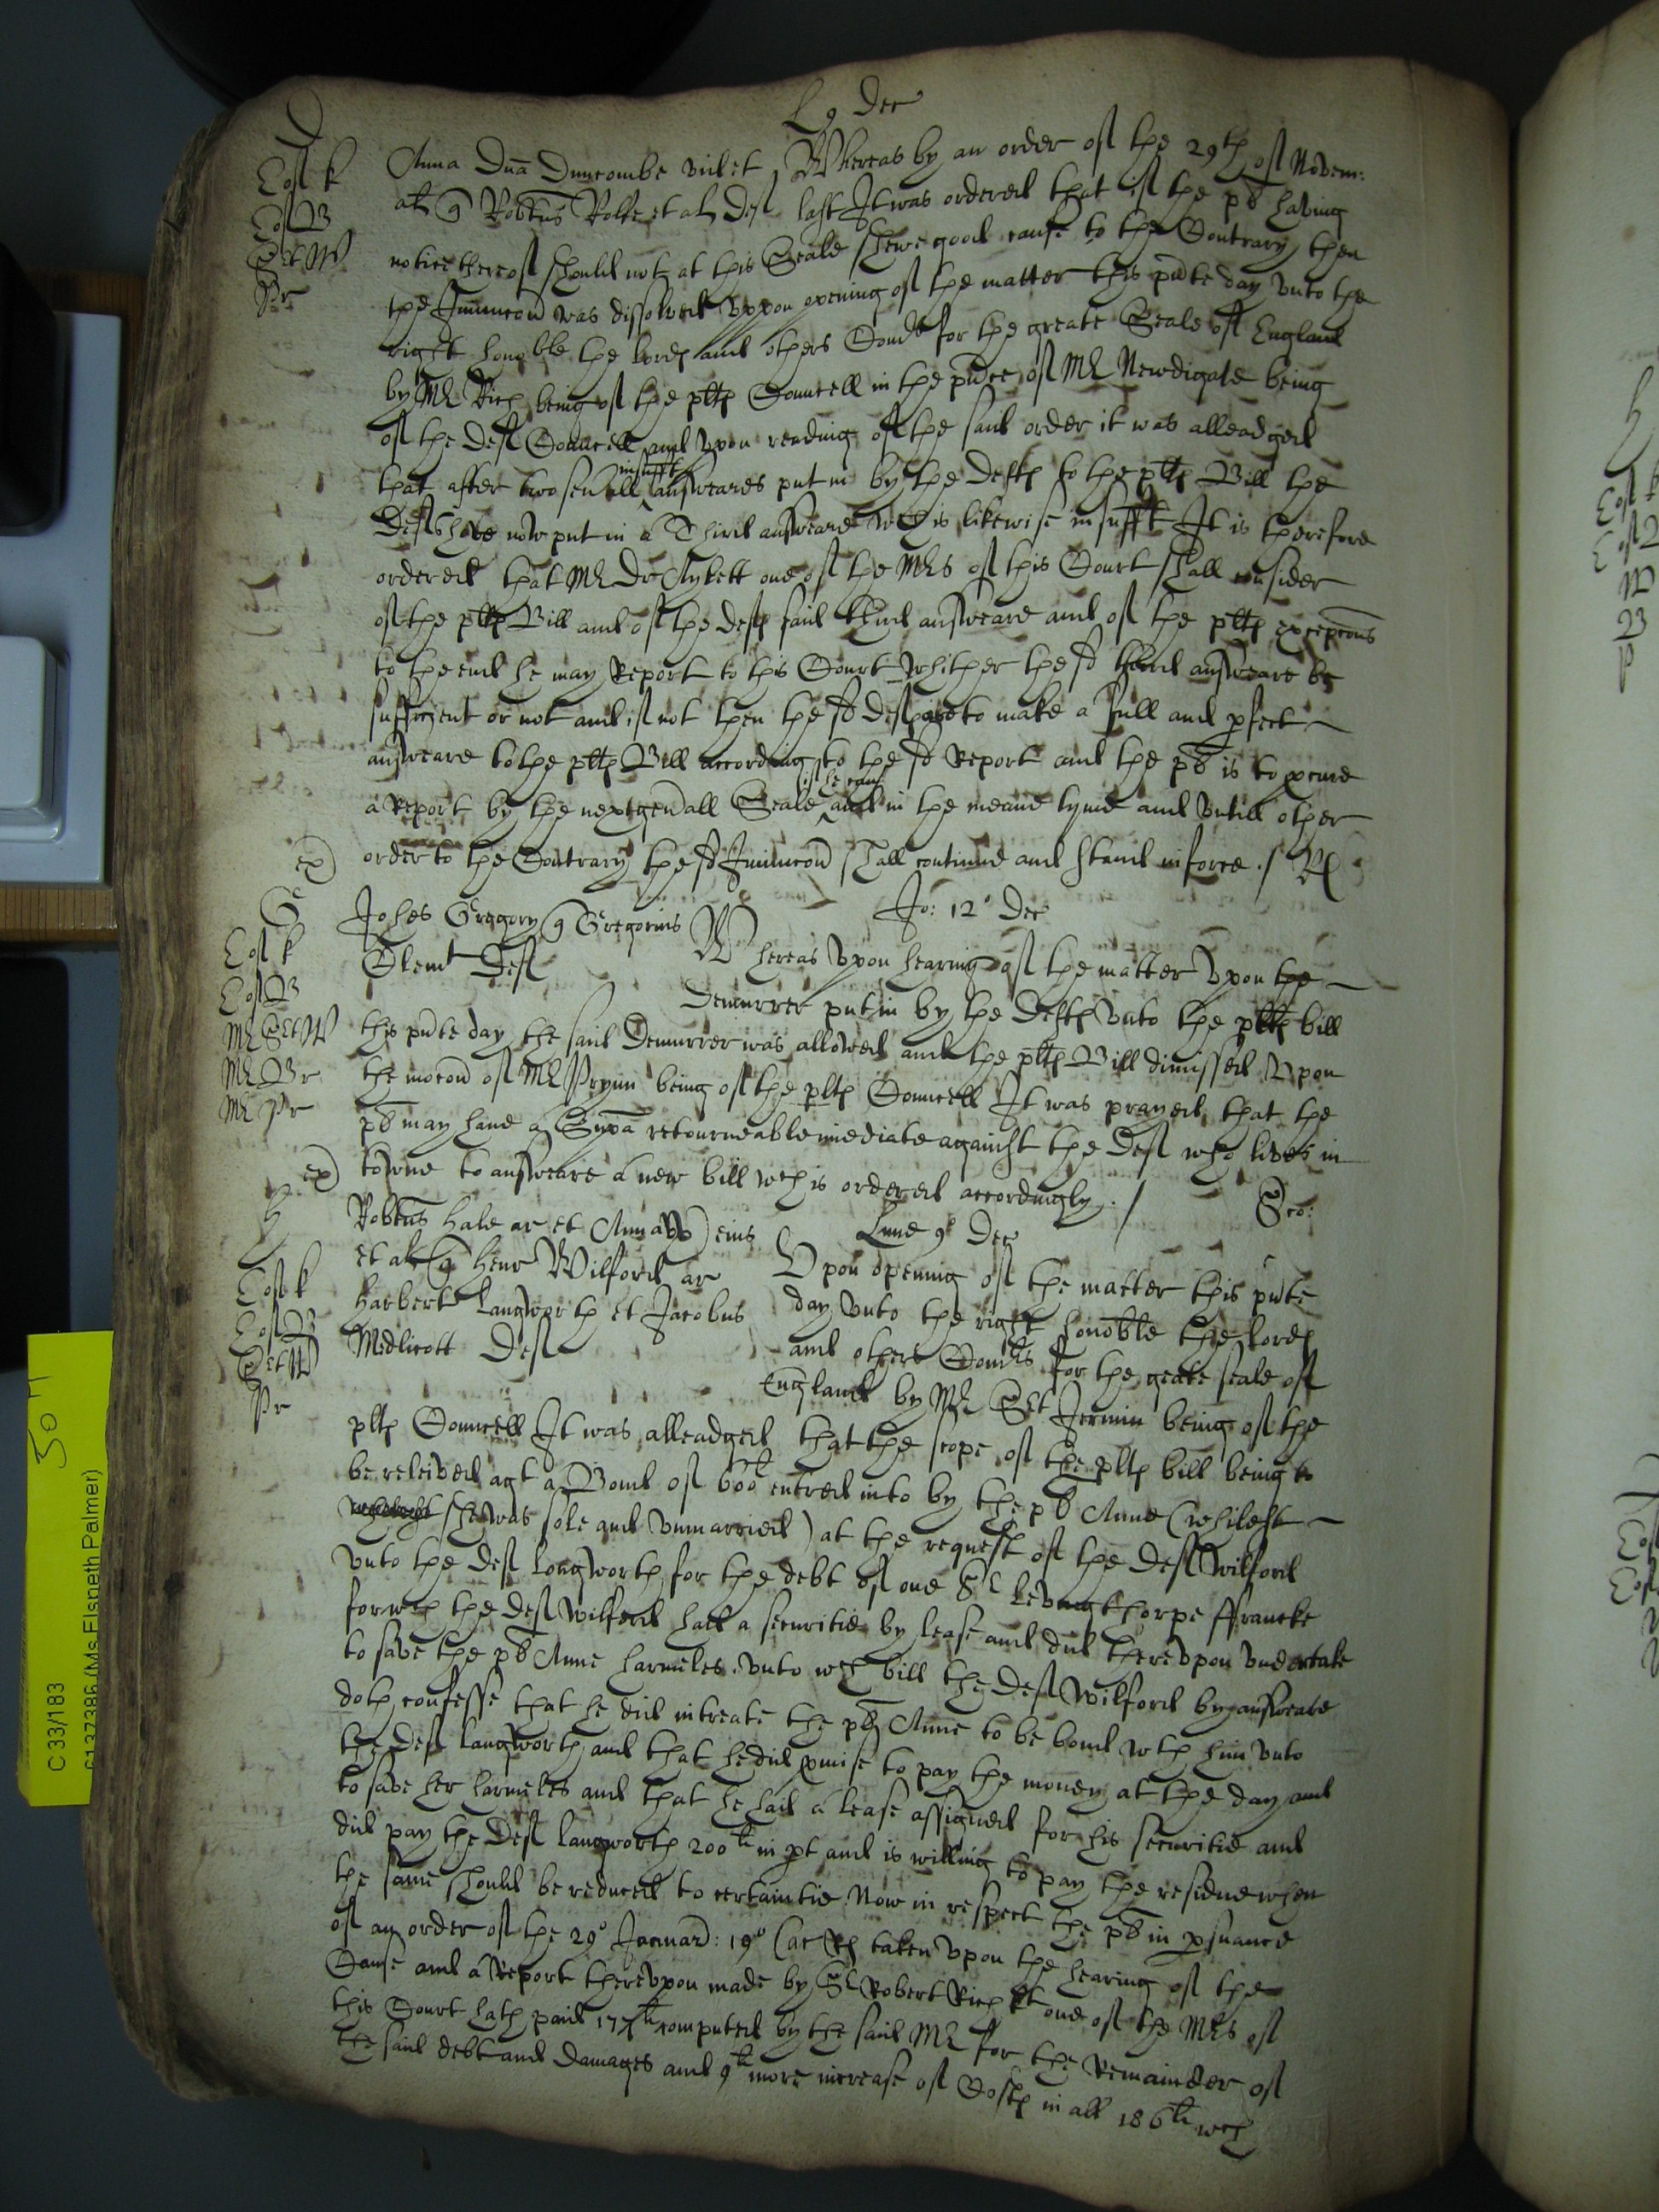 L 9 Dec
D
Anna Dna Duncombe vid et Whereas by an order of the 29th of Novem:
al q Robtus Rolfe et al Def last It was ordered that if the pl having
notice thereof should not at this Seale shewe good cause to the Contrary then
the Iniuncon was dissolved Vppon opening of the matter this pnte day vnto the
right honoble the Lords and others Comrs for the greate Seale of England
by Mr Rich being of the plts Councell in the pnce of Mr Newdigate being
of the Defs Councell and vpon reading of the said order it was alleadged
that after two seuall insuffit answeares put in by the Defts to the plts Bill the
Defts have now put in a Third answeare wch is likewise insuffit It is therefore
ordered that Mr Dr Aylett one of the Mrs of this Court shall consider
of the plts Bill and of the Defts said third answeare and of the plts excepcons
to the end he may Report to this Court whither the sd third answeare be
sufficient or not and if not then the sd Defts are to make a full and pfect
answeare to the plts Bill according to the sd Report and the pl is to pcure
a Report by the next genall Seale if he can and in the meane tyme and vntill other
order to the Contrary the sd Iniuncon shall continue and stand in force ./ Rl
ex
G
Johes Gregory q Gregorius Jo: 12o Dec
Clemt Def Whereas vpon hearing of the matter vpon the
Demurrer put in by the Defts vnto the plts bill
this pnte day the said Demurrer was allowed and the plts Bill dimissed Vpon
the mocon of Mr Prynn being of the plts Councell It was prayed that the
pl may have a Supa retourneable imediate against the Def who lives in
towne to answeare a new bill wch is ordered accordingly ./ Geo:
ex
H
Robtus Hale ar et Anna vx eius Lune 9o Dec
et al q Henr Wilford ar Vpon opening of the matter this pnte
Harbert Langworth et Jacobus day vnto the right honoble the Lords
Medlicott Def and others Comrs for the greate seale of
England by Mr Sert Jermin being of the
plts Councell It was alleadged that the scope of the plts bill being to
be releived agt a Bond of 600l entred into by the pl Anne (whilest
she was sole and vnmarried) at the request of the Def Wilford
vnto the Def Longworth for the debt of one Sr Leventhorpe ffrancke
for wch the Def Wilford had a securitie by lease and did therevpon vndertake
to save the pl Anne harmeles vnto wch bill the Def Wilford by answeare
doth confesse that he did intreate the pl Anne to be bond wth him vnto
the Def Langworth and that he did pmise to pay the money at the day and
to save her harmeles and that he had a lease assigned for his securitie and
did pay the Def Langworth 200li in pt and is willing to pay the residue when
the same should be reduced to certaintie Now in respect the pl in psuance
of an order of the 29o Januar: 19o Car Rs taken vpon the hearing of the
Cause and a Report therevpon made by Sr Robert Rich kt one of the Mrs of
this Court hath paid 177li computed by the said Mr for the Remainder of
the said debt and Damages and 9li more increase of Costs in all 186li wch
C 33/183
(Ms Elspeth Palmer)